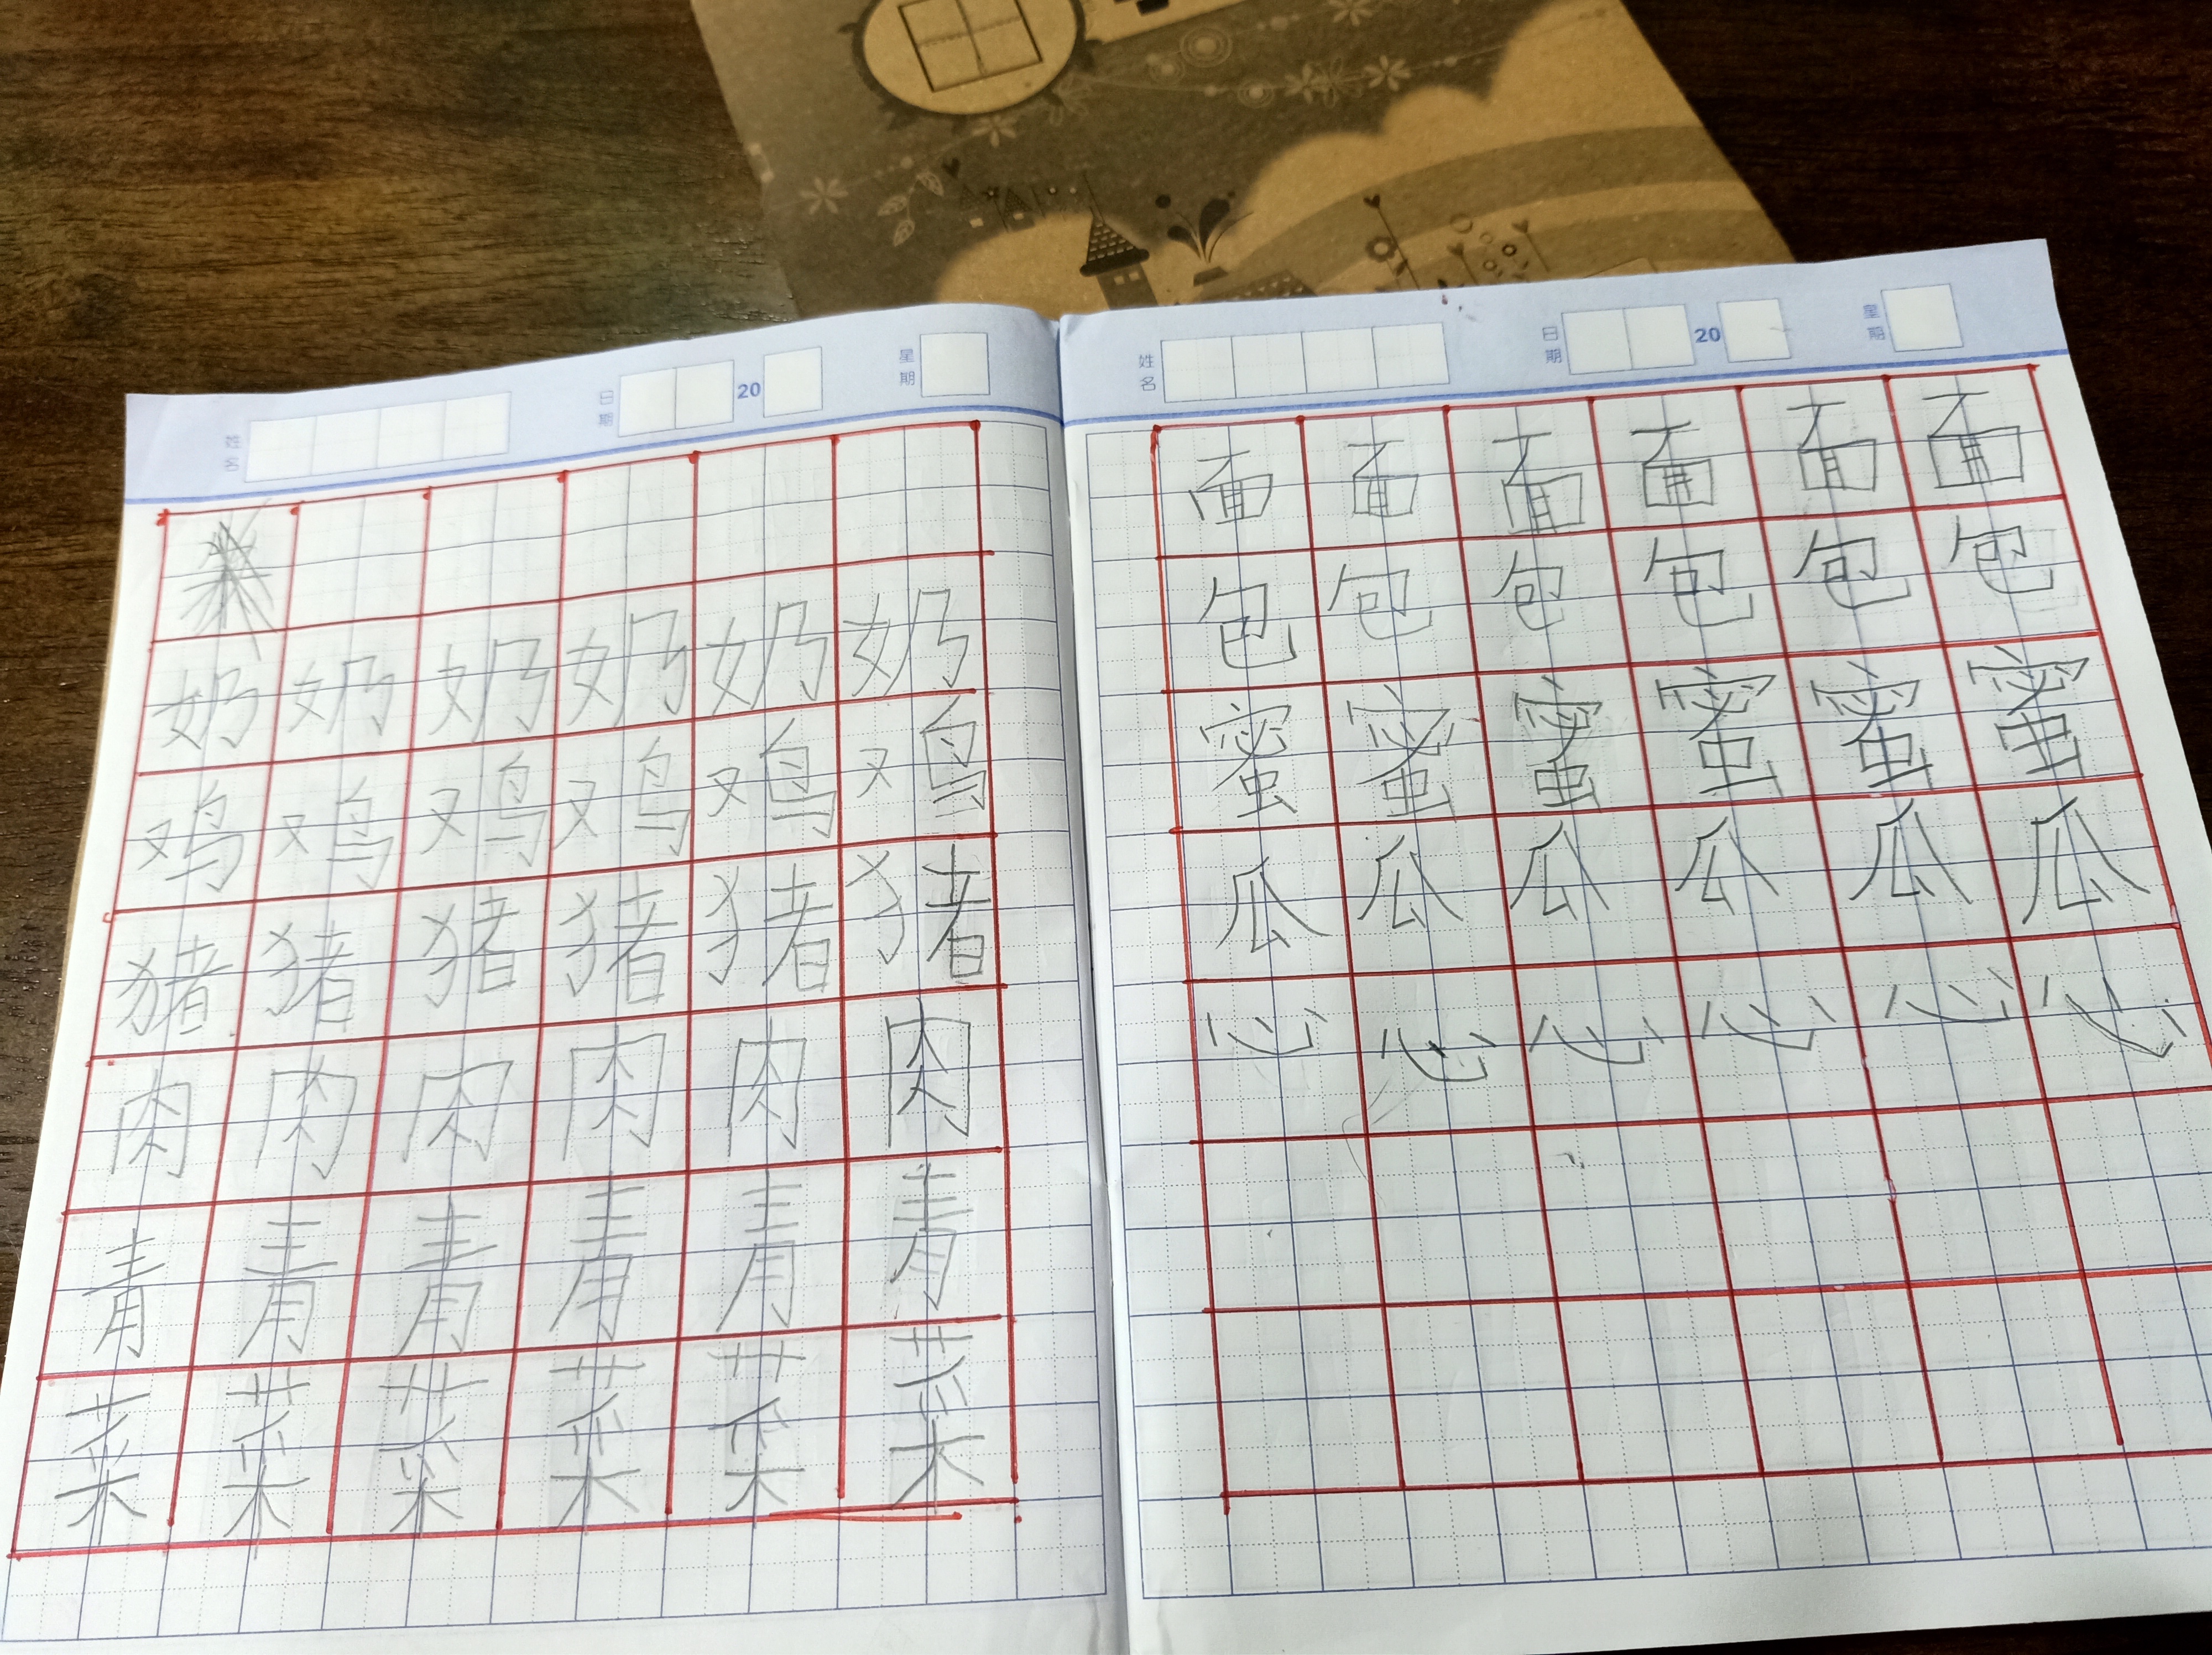 姓名 日期 20 星期
奶 奶 奶 奶 奶 奶
鸡 鸡 鸡 鸡 鸡 鸡
猪 猪 猪 猪 猪 猪
肉 肉 肉 肉 肉 肉
青 青 青 青 青 青
菜 菜 菜 菜 菜 菜
姓名 日期 20 星期
面 面 面 面 面 面
包 包 包 包 包 包
蜜 蜜 蜜 蜜 蜜 蜜
瓜 瓜 瓜 瓜 瓜 瓜
心 心 心 心 心 心